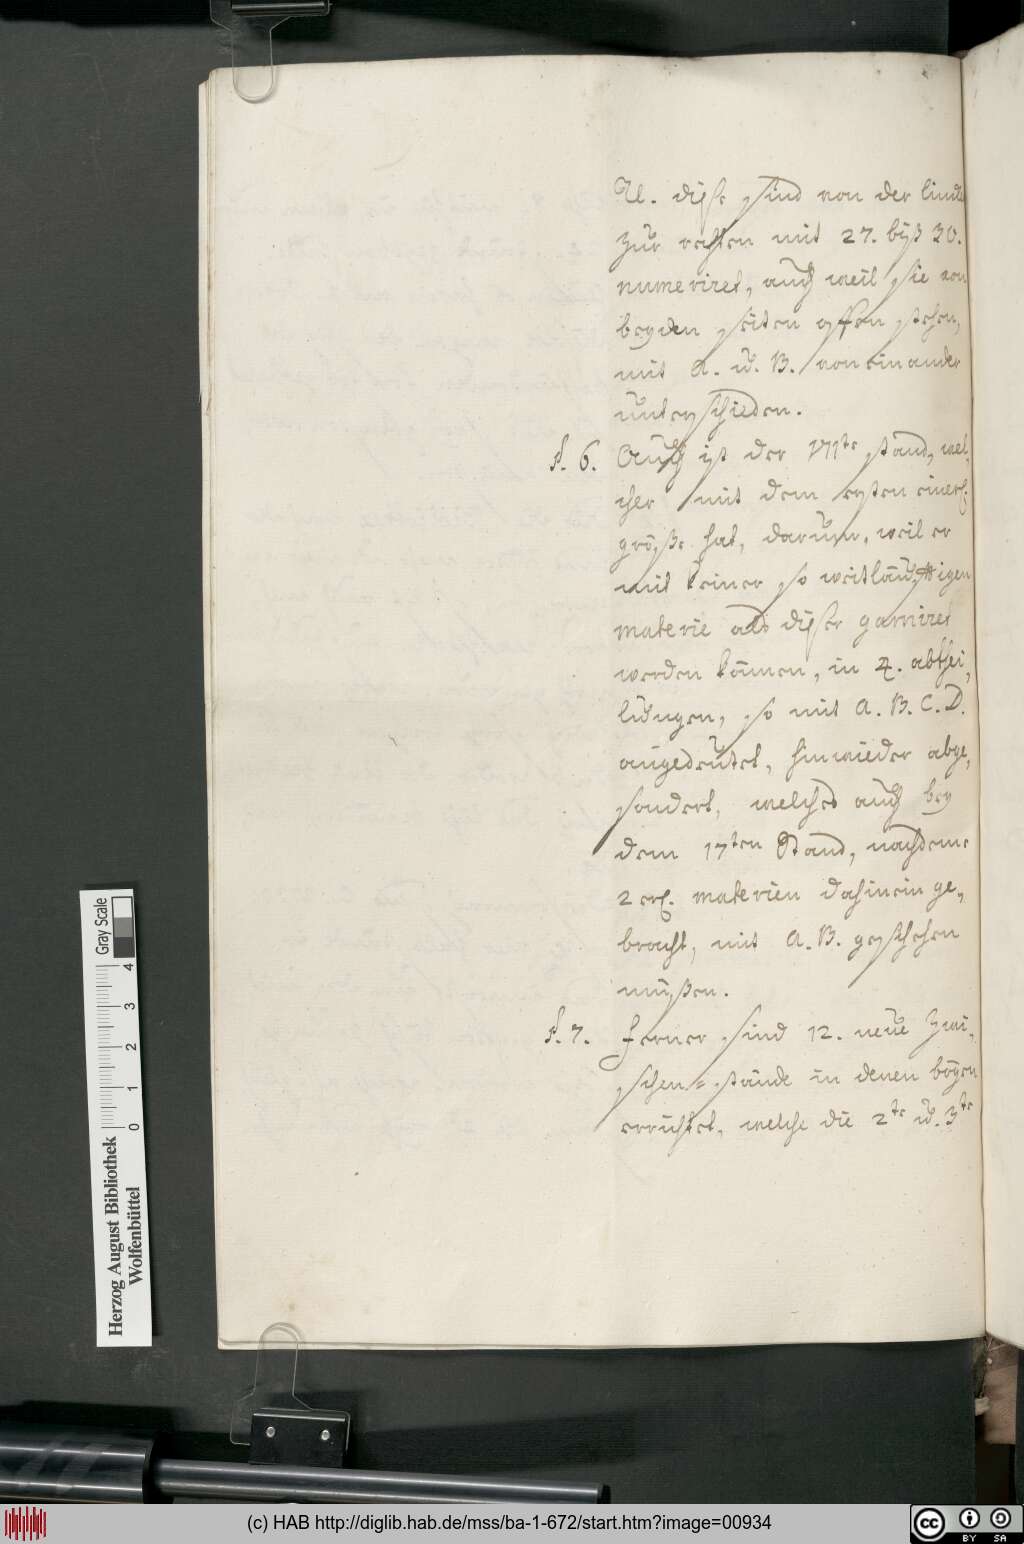 U. diese sind von der lincken
zur rechten mit 27. biß 30.
numeriret, auch weil sie von
beyden seiten offen stehen,
mit A. u. B. voneinander
unterschieden.
§. 6. Auch ist der VIIte stand, wel,
cher mit dem ersten einerl.
größe hat, darum, weil er
mit keiner so weitläufftigen
materie als dieser garniret
werden können, in 4. abthei,
lungen, so mit A. B. C. D.
angedeutet, hinwieder abge,
sondert, welches auch bey
dem 17ten Stand, nachdeme
2 erl. materien dahinein ge,
bracht, mit A. B. geschehen
müßen.
§. 7. ferner sind 12. neue Zwi,
schen-stände in denen bögen
errichtet, welche die 2te u. 3te
Herzog August Bibliothek
Wolfenbüttel
Gray Scale
0 1 2 3 4
(c) HAB http://diglib.hab.de/mss/ba-1-672/start.htm?image=00934
cc BY SA